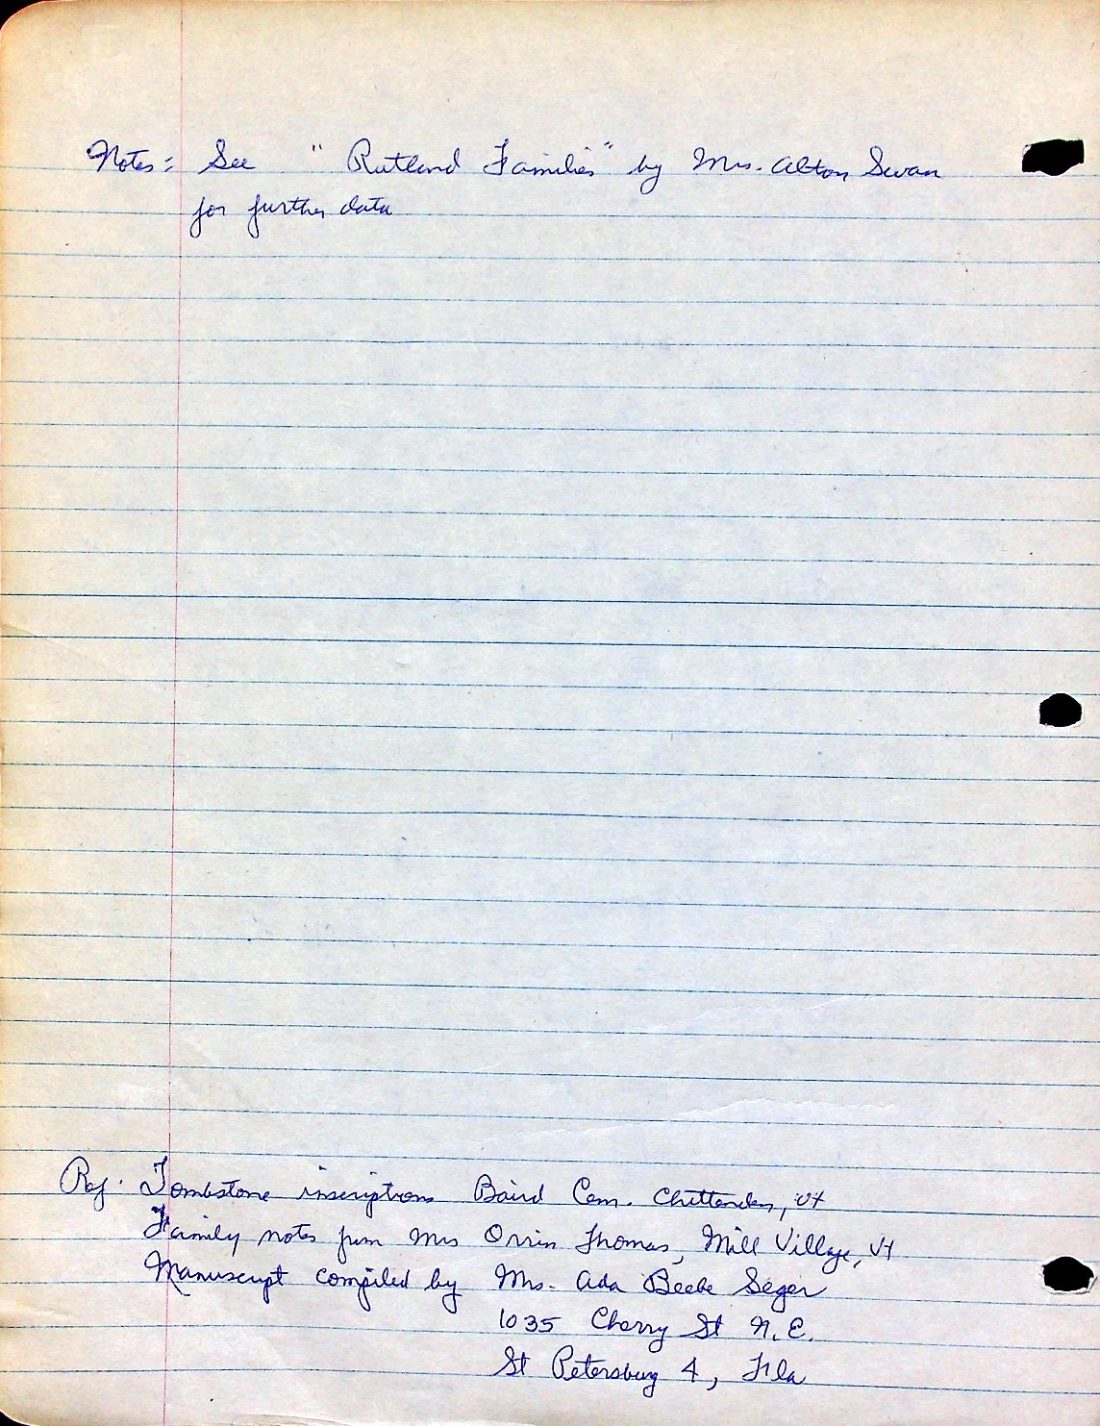 Notes: See "Rutland Families" by Mrs. Alton Swan
for further data
Ref. Tombstone inscriptions Baird Cem. Chittenden, Vt
Family notes from Mrs Orrin Thomas, Mill Village, Vt
Manuscript compiled by Mrs. Ada Beebe Seger
1035 Cherry St N.E.
St Petersburg 4, Fla